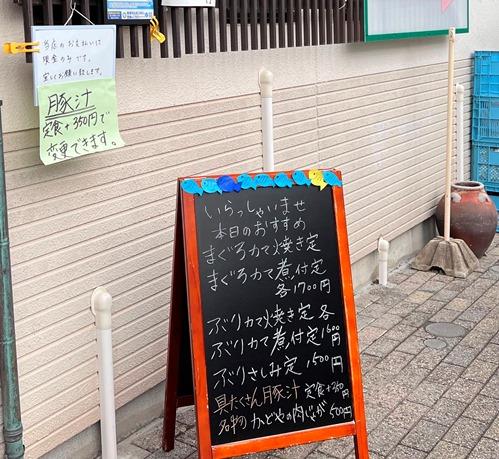 当店のお支払いは
現金のみです。
宜しくお願い致します。
豚汁
定食+350円で
変更できます。
いらっしゃいませ
本日のおすすめ
まぐろカマ焼き定
まぐろカマ煮付定
各1700円
ぶりカマ焼き定 各
ぶりカマ煮付定1600円
ぶりさしみ定 1500円
具だくさん豚汁 定食+350
名物 かどやの肉じゃが 500円